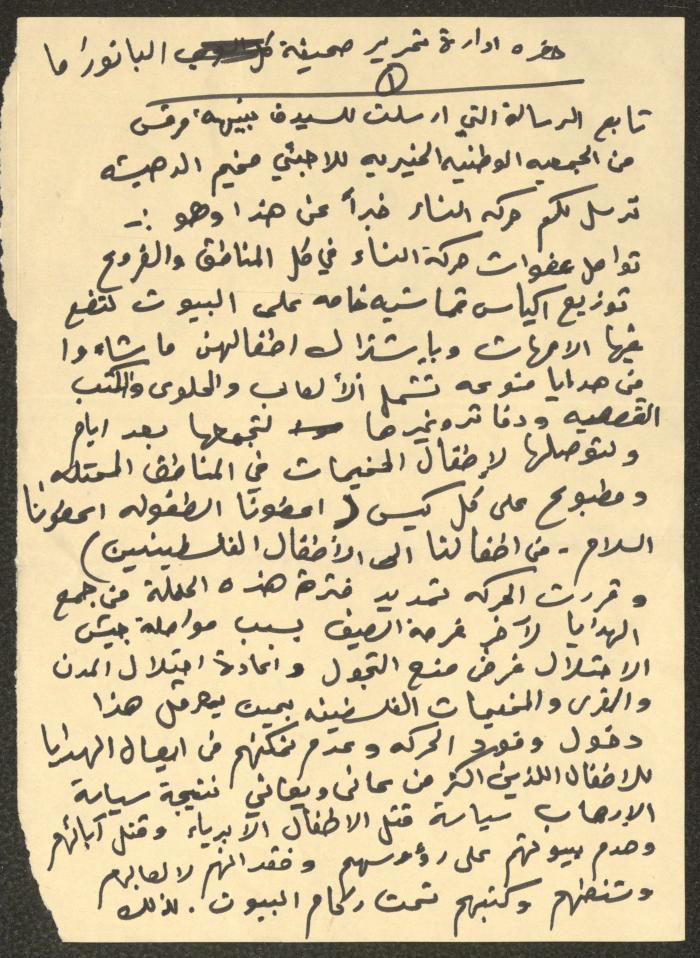 حضره ادارة تحرير صحيفة كل البانوراما
١
تابع الرسالة التي ارسلت للسيدة بنيهه مرقس
من الجمعيه الوطنيه الخيريه للاجئي مخيم الدهيشه
ترسل لكم حركه النساء خبراً عن هذا وهو :-
تواصل عضوات حركة النساء في كل المناطق والفروع
توزيع اكياس قماشيه خاصه على البيوت لتضع
فيها الامهات وبإشتراك اطفالهن ما شاءوا
من هدايا منوعه تشمل الألعاب والحلوى والكتب
القصصيه ودفاتر وغيرها لتجمعها بعد ايام
ولتوصلها لإطفال المخيمات في المناطق المحتله
ومطبوع على كل كيس ( اعطونا الطفوله اعطونا
السلام - من اطفالنا الى الأطفال الفلسطينيين )
وقررت الحركه تمديد فترة هذه الحملة من جمع
الهدايا لآخر فرصة الصيف بسبب مواصلة جيش
الاحتلال فرض منع التجول واعادة احتلال المدن
والقرى والمخيمات الفلسطينيه بحيث يعرقل هذا
دخول وفود الحركه وعدم تمكنهم من ايصال الهدايا
للاطفال اللذين اكثر من عانى ويعاني نتيجة سياسة
الإرهاب سياسة قتل الاطفال الأبرياء وقتل آبائهم
وهدم بيوتهم على رؤوسهم وفقدانهم لالعابهم
وشنطهم وكتبهم تحت ركام البيوت . لذلك